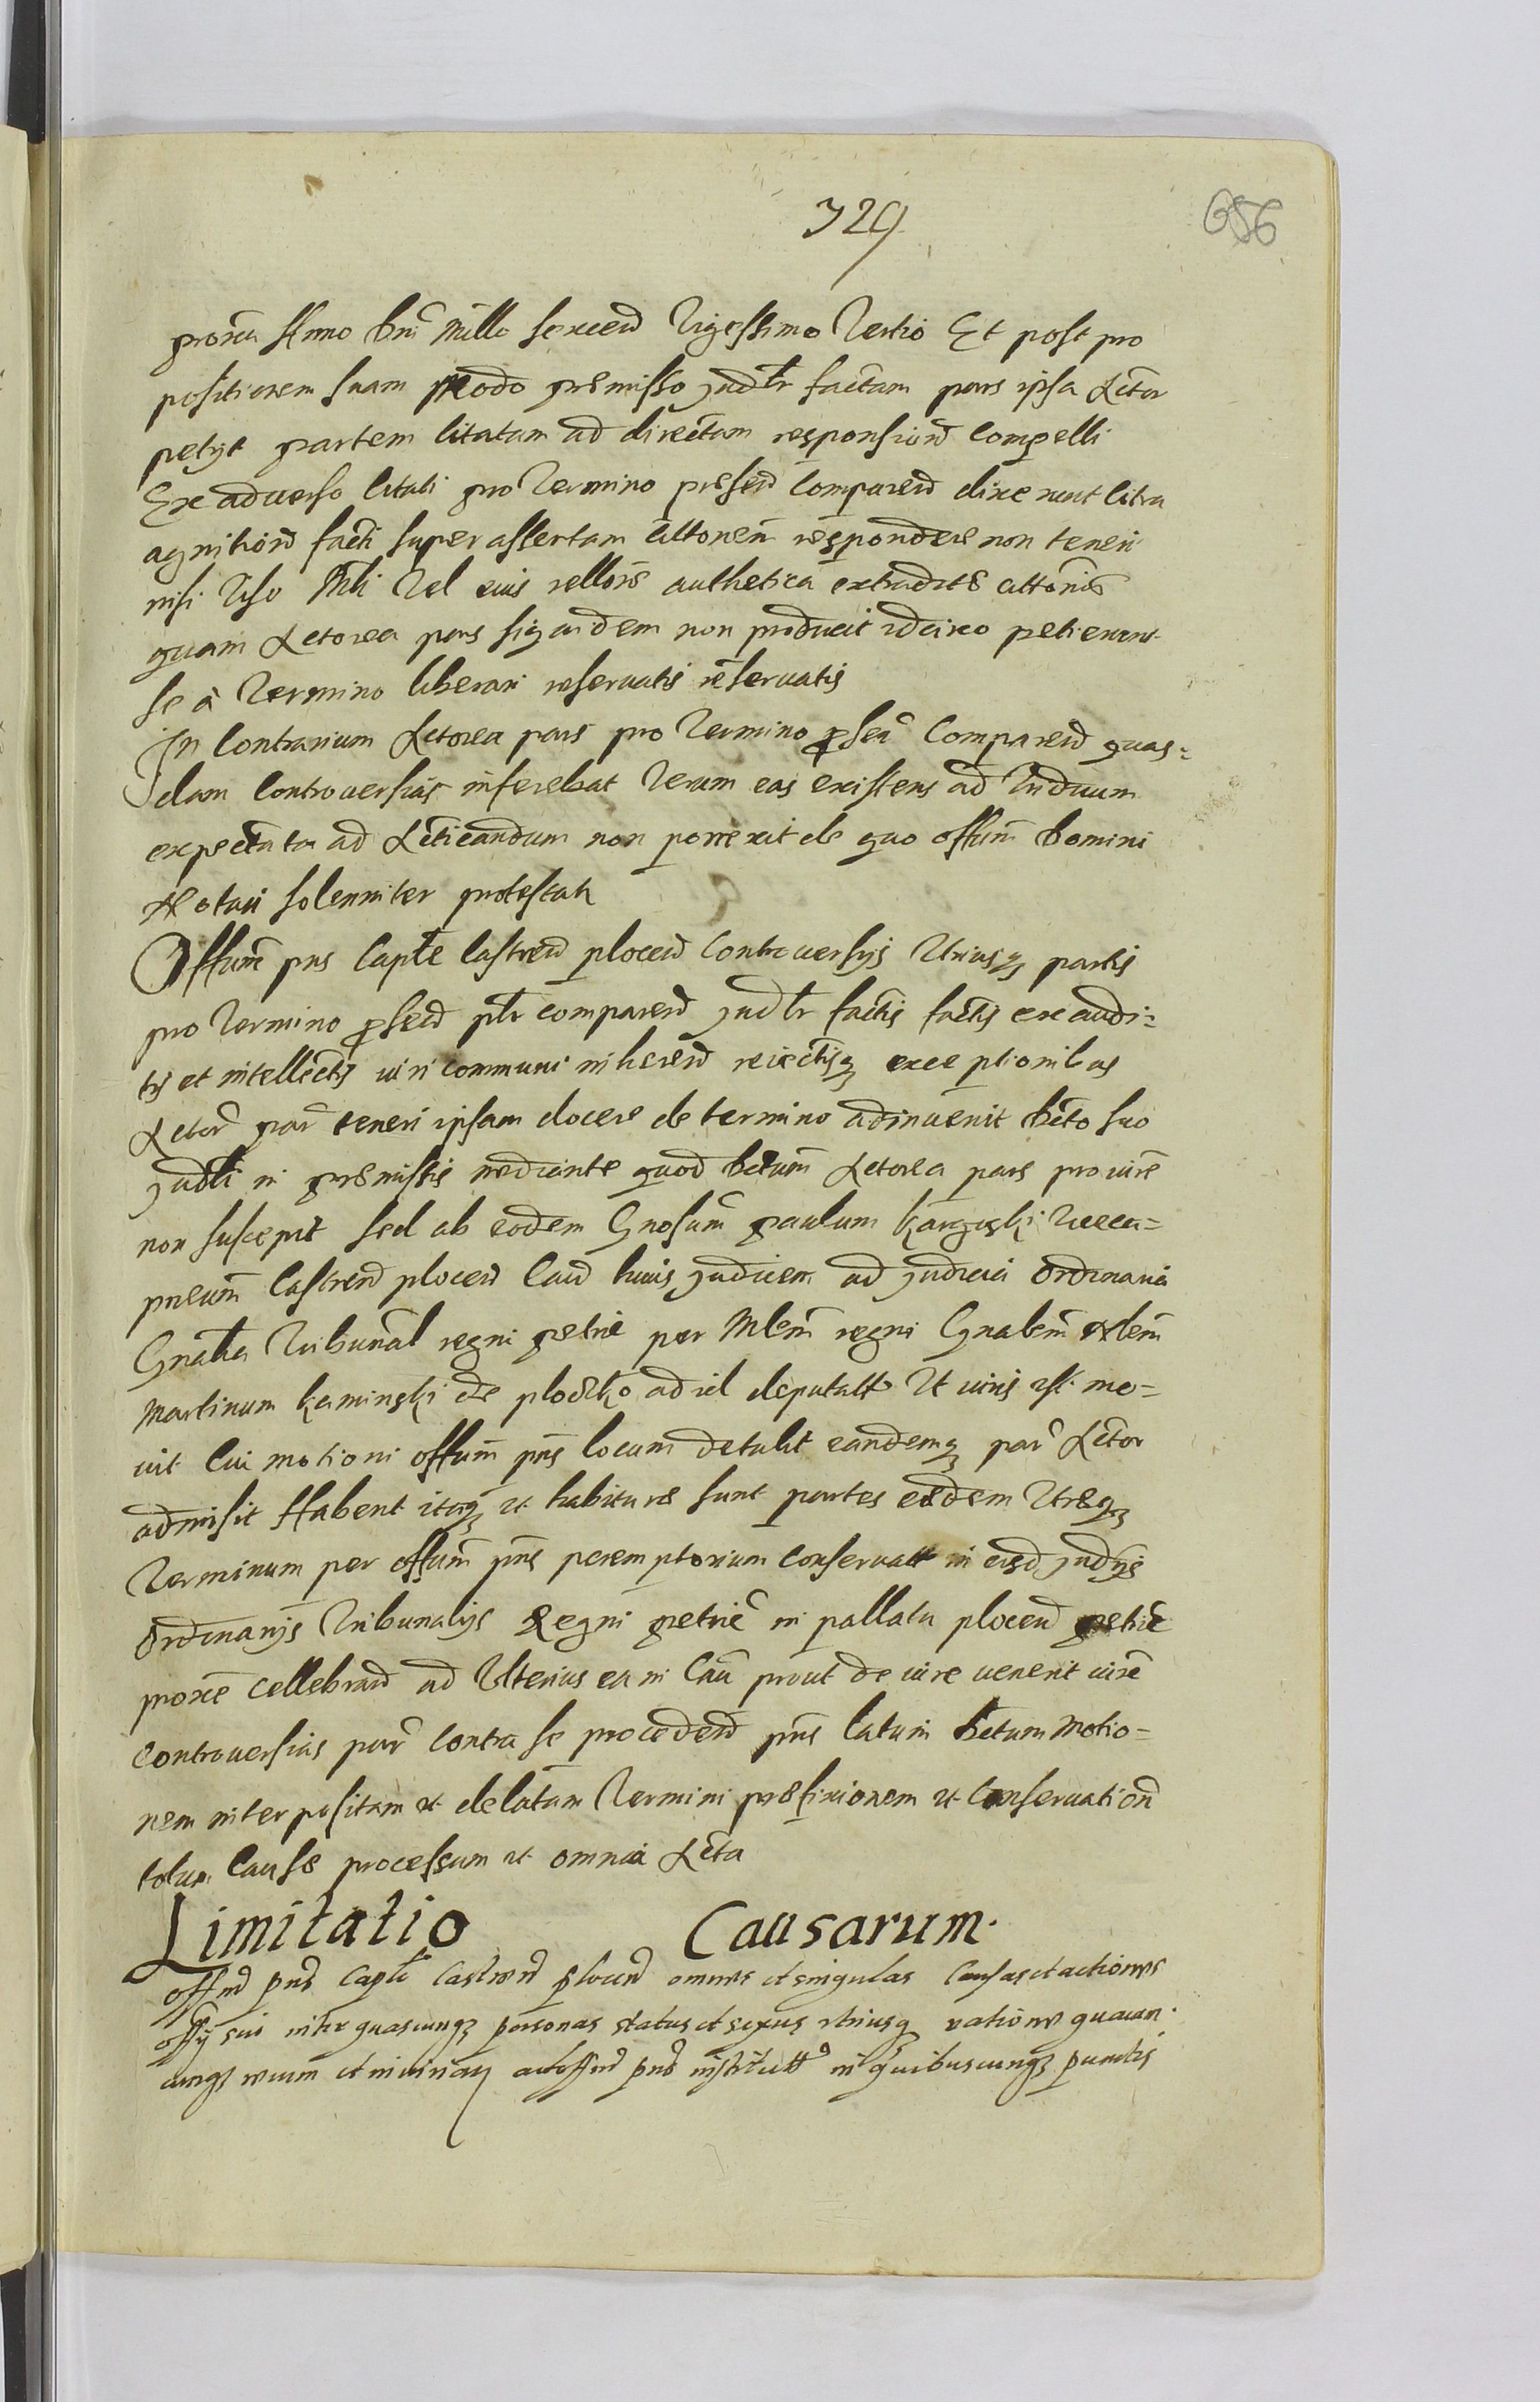 329
656
proxia Anno Dni Millo sexcen Vigessimo Tertio Et post pro
positionem suam modo premisso Judtr factam pars ipsa Actor
petyt partem citatam ad directam responsion compelli
Ex adverso Citati pro Termino presen Comparen dixerunt Citra
agnition facti super assertam Citonem respondere non teneri
nisi Viso Mli Vel eius rellone authetica extradite Citonis
quam Actorea pars siquidem non producit idcirco petierunt
se à Termino liberari reservatis reservatis
In Contrarium Actorea pars pro Termino prsen Comparen quas=
dam Controversias inferebat Verum eas existens ad Triduum
expectata ad Acticandum non porrexit de quo offum Domini
Notari solenniter protestatr
Offum pns Capte Castren plocen Controversijs Utriusq partis
pro Termino prsen ptr comparen Judtr factis factis exaudi=
tis et intellectis iuri communi inheren reiectisq exceptionibus
Actor par teneri ipsam docere de termino adinvenit Dcto suo
Judli in premissis mediante quod Dctum Actorea pars pro iure
non suscepit sed ab eodem Gnosum paulum Karguski Vicecapneum
pneum Castren plocen Caus huius Judicem ad Judicia Ordinaria
Gnalia Tribunal regni petric per Mlem regni Gnalem Nlem
Martinum Kaminski de plocko ad id deputatt Ut iuris est mo=
vit Cui motioni offum pns locum detulit eandemq par Actor
admisit Habent itaq et habiture sunt partes eedem Utreq
Terminum per offum pns peremptorium conservatt in eisd Judijs
Ordinarijs Tribunalijs Regni petric in pallata plocen petric
proxe cellebran ad Ulterius ea in Cau prout de iure venerit iure
controversias par Contra se proceden pns latum Dctum Motio=
nem interpositam et delatam Termini prefixionem et Conservation
totum Cause processum et omnia Acta
Limitatio Causarum.
offm pns Capte Castren plocen omnes et singulas Causas et actiones
offy sui inter quascunq personas status et sexus utriusq ratione quarum
cunq rerum et iniuriar ad offm pns institutt in quibuscunq punctis